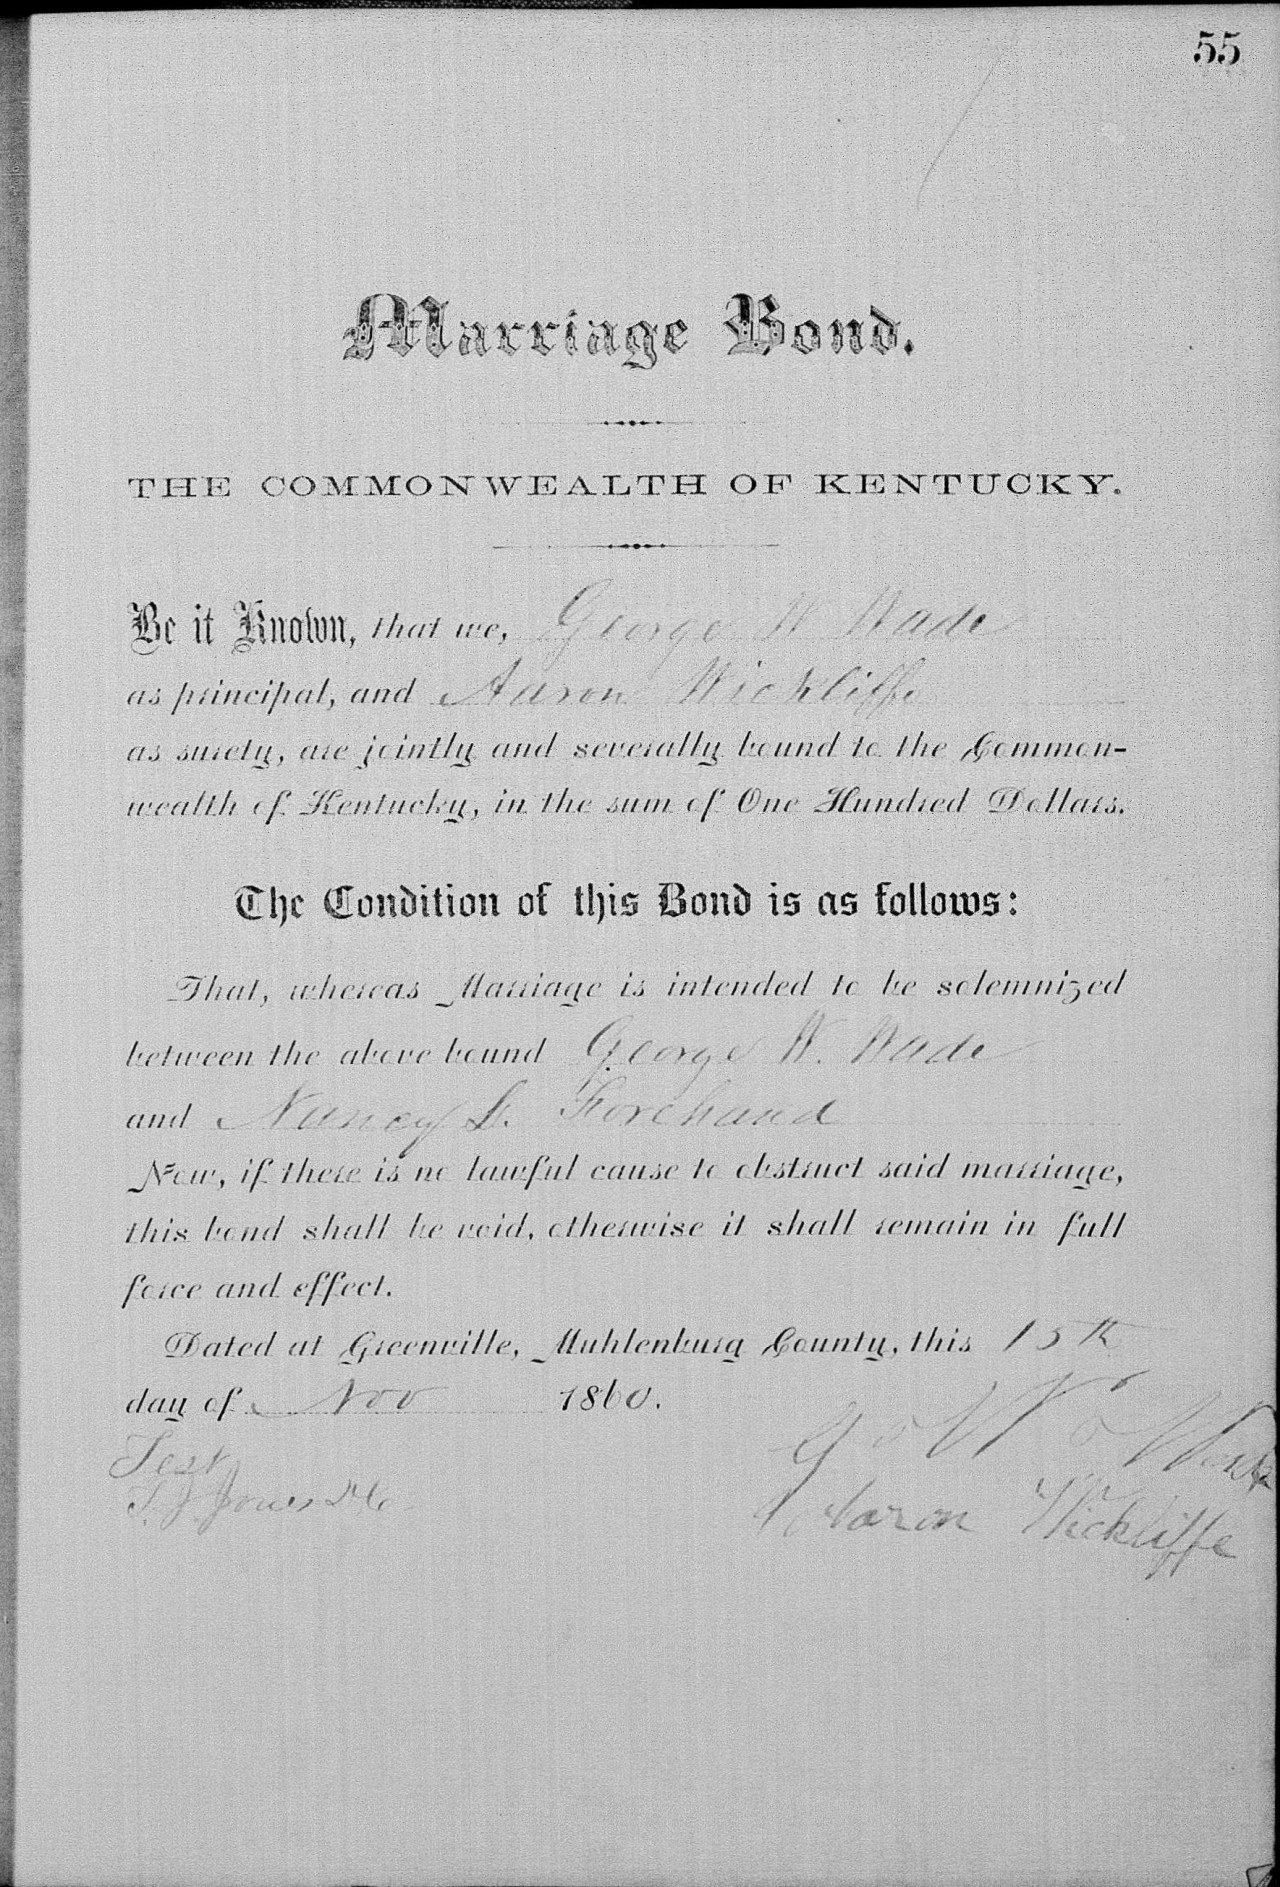 55
Marriage Bond.
THE COMMONWEALTH OF KENTUCKY.
Be it Known, that we, George W Wade
as principal, and Aaron Wickliffe
as surety, are jointly and severally bound to the Common-
wealth of Kentucky, in the sum of One Hundred Dollars.
The Condition of this Bond is as follows:
That, whereas Marriage is intended to be solemnized
between the above bound George W. Wade
and Nancy L. Forehand
Now, if there is no lawful cause to obstruct said marriage,
this bond shall be void, otherwise it shall remain in full
force and effect.
Dated at Greenville, Muhlenburg County, this 15th
day of Nov 1860.
Test
T. J. Jones
G W
Aaron Wickliffe